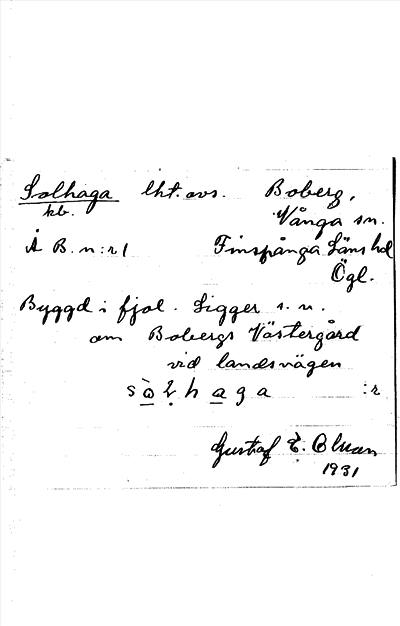 Solhaga lht. avs. Boberg,
kb. Vånga sn.
Å B. n:r 1 Finspånga läns hd
Ögl.
Byggd i fjol. Ligger s. v.
om Bobergs Västergård
vid landsvägen
sòlhaga :r
Gustaf E.
1931